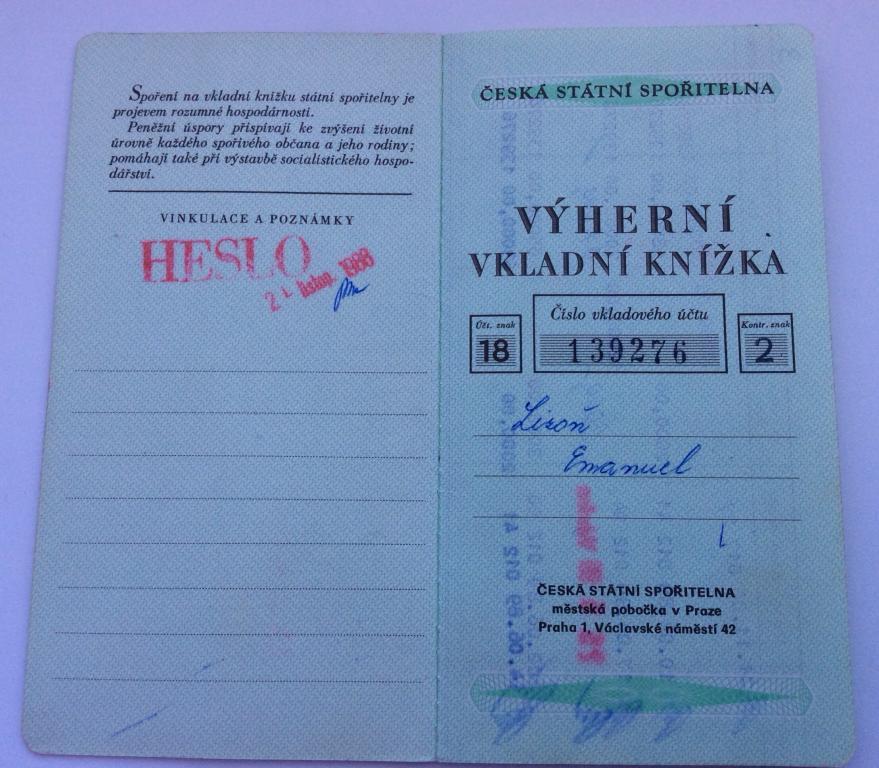 Spoření na vkladní knížku státní spořitelny je
projevem rozumné hospodárnosti.
Peněžní úspory přispívají ke zvýšení životní
úrovně každého spořivého občana a jeho rodiny;
pomáhají také při výstavbě socialistického hospo-
dářství.
VINKULACE A POZNÁMKY
HESLO
21. listop. 1988
ČESKÁ STÁTNÍ SPOŘITELNA
VÝHERNÍ
VKLADNÍ KNÍŽKA
Účt. znak
18
Číslo vkladového účtu
139276
Kontr. znak
2
Lizoň
Emanuel
ČESKÁ STÁTNÍ SPOŘITELNA
městská pobočka v Praze
Praha 1, Václavské náměstí 42